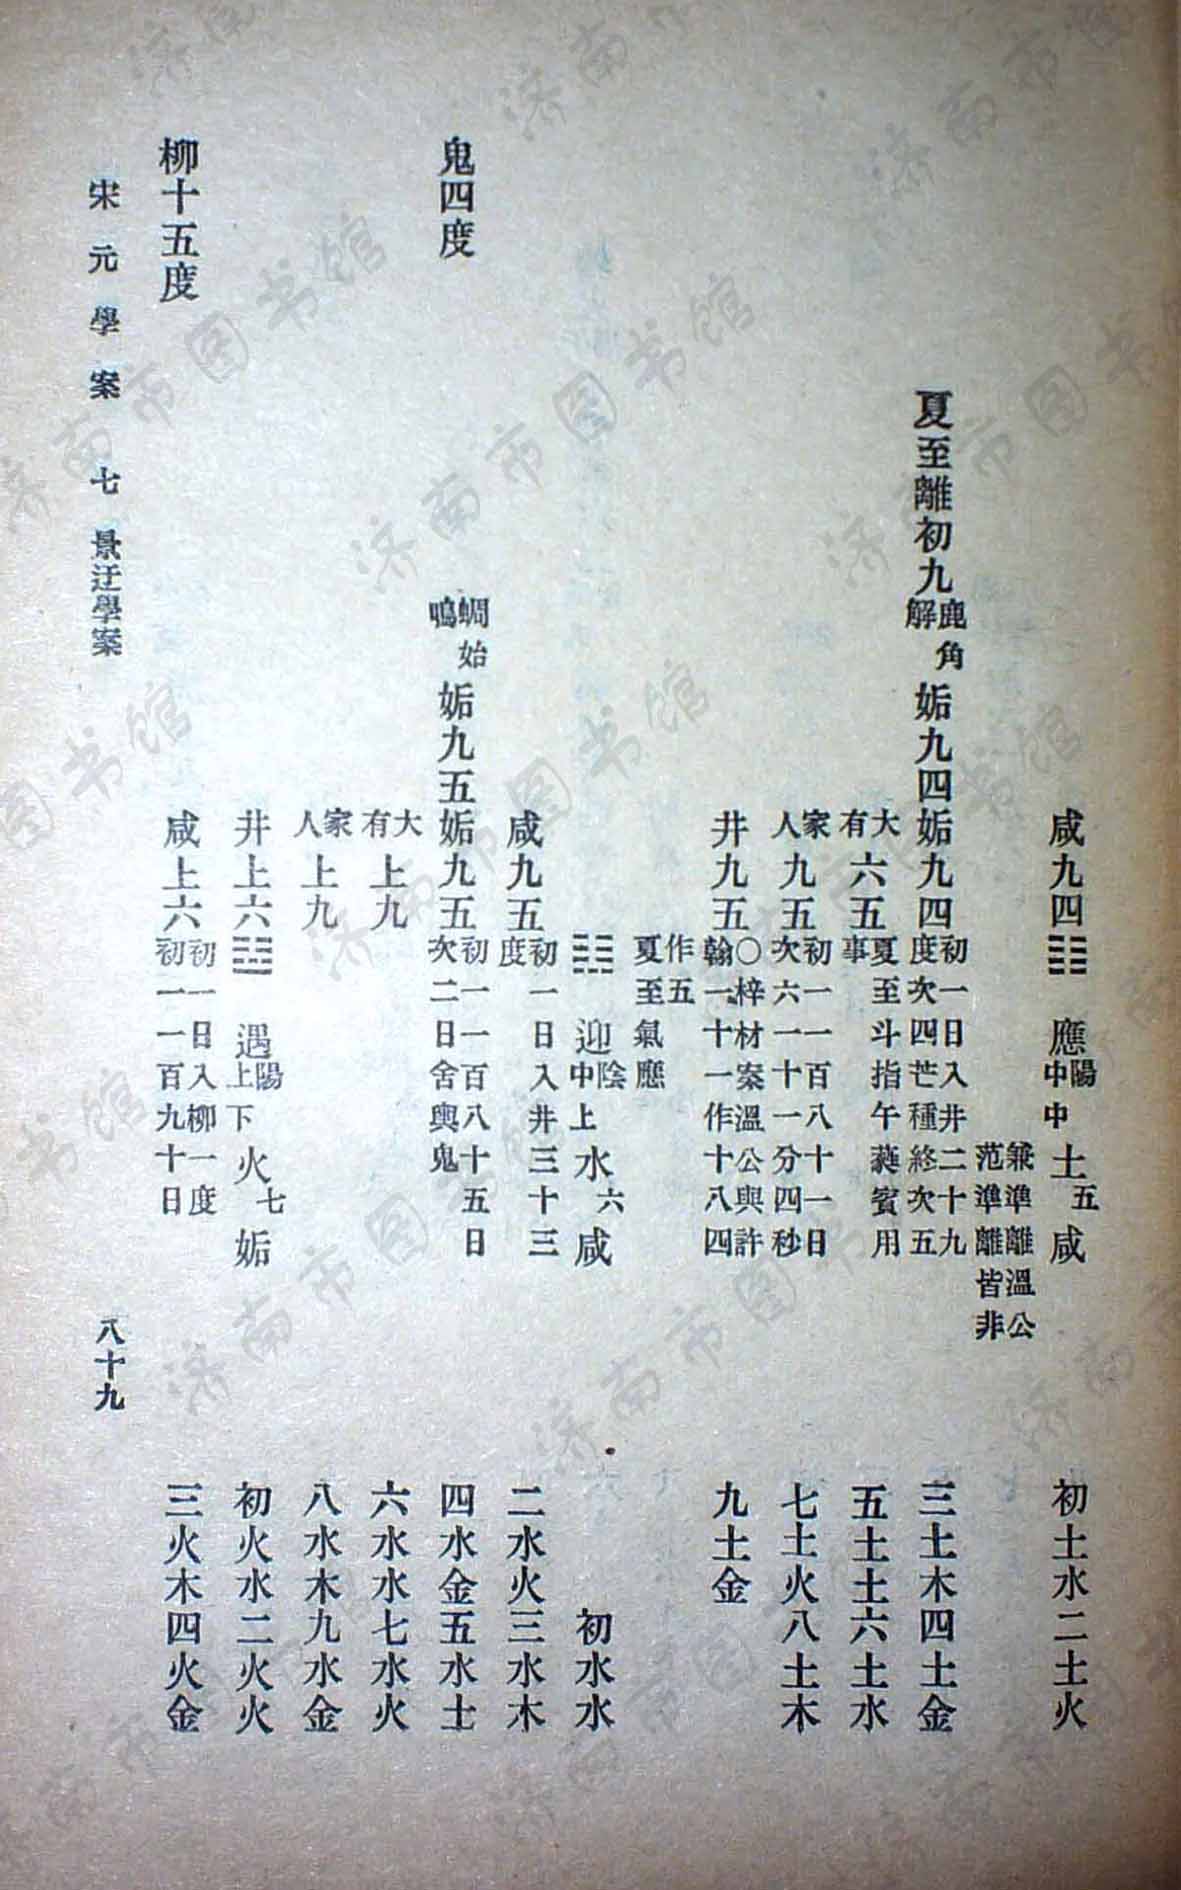 咸九四 應 陽中中 土 五 咸 初土水二土火
兼準離溫公
范準離皆非
夏至離初九 鹿角解 姤九四 姤九四 初一日入井二十九度次四芒種終次五 三土木四土金
大有六五 夏至斗指午蕤賓用事 五土土六土水
家人九五 初一一百八十一日次六一十一分四秒 七土火八土木
井九五 〇梓材案溫公與許翰一十一作十八四 九土金
作五
夏至氣應
迎 陰中上 水 六 咸 初水水
咸九五 初一日入井三十三度 二水火三水木
鬼四度 蜩始鳴 姤九五 姤九五 初一一百八十五日次二日舍輿鬼 四水金五水土
大有上九 六水水七水火
家人上九 八水木九水金
井上六 遇 陽上下 火 七 姤 初火水二火火
柳十五度 咸上六 初一日入柳一度初一一百九十日 三火木四火金
宋元學案 七 景迂學案 八十九
济南市图书馆